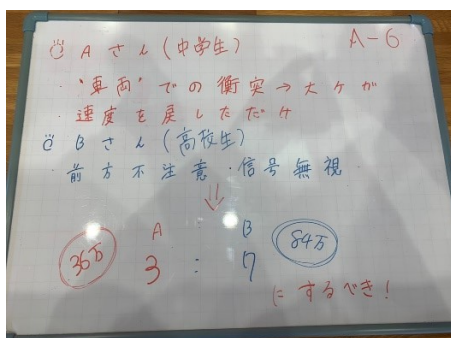 A-6
Aさん(中学生)
・"車両"での衝突→大ケガ
・速度を戻しただけ
Bさん(高校生)
・前方不注意・信号無視
⇓
A : B
36万 3 : 7 84万
にするべき!